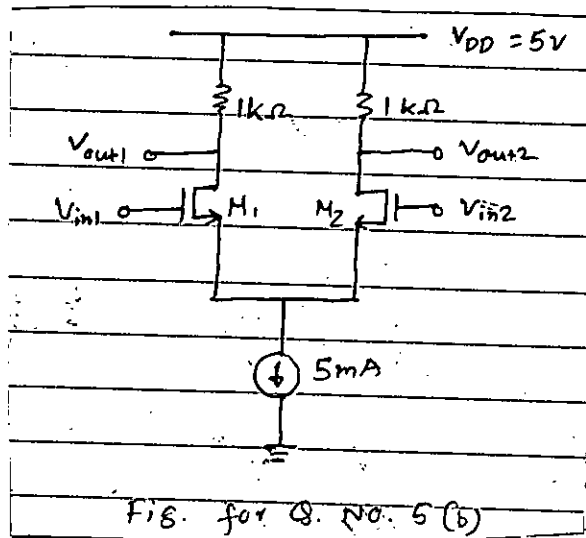 VDD = 5V
1kΩ 1kΩ
Vout1 Vout2
Vin1 M1 M2 Vin2
5mA
Fig. for Q. No. 5 (b)